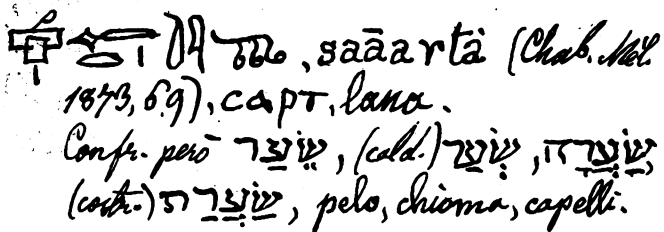 , saāarta̍ (Chab. Mél.
1873, 6.9), ⲥⲁⲣⲧ, lana.
Confr. però שֵׂעַר, (cald.) שְׂעַר, שַׂעֲרָה,
(costr.) שַׂעֲרַת, pelo, chioma, capelli.